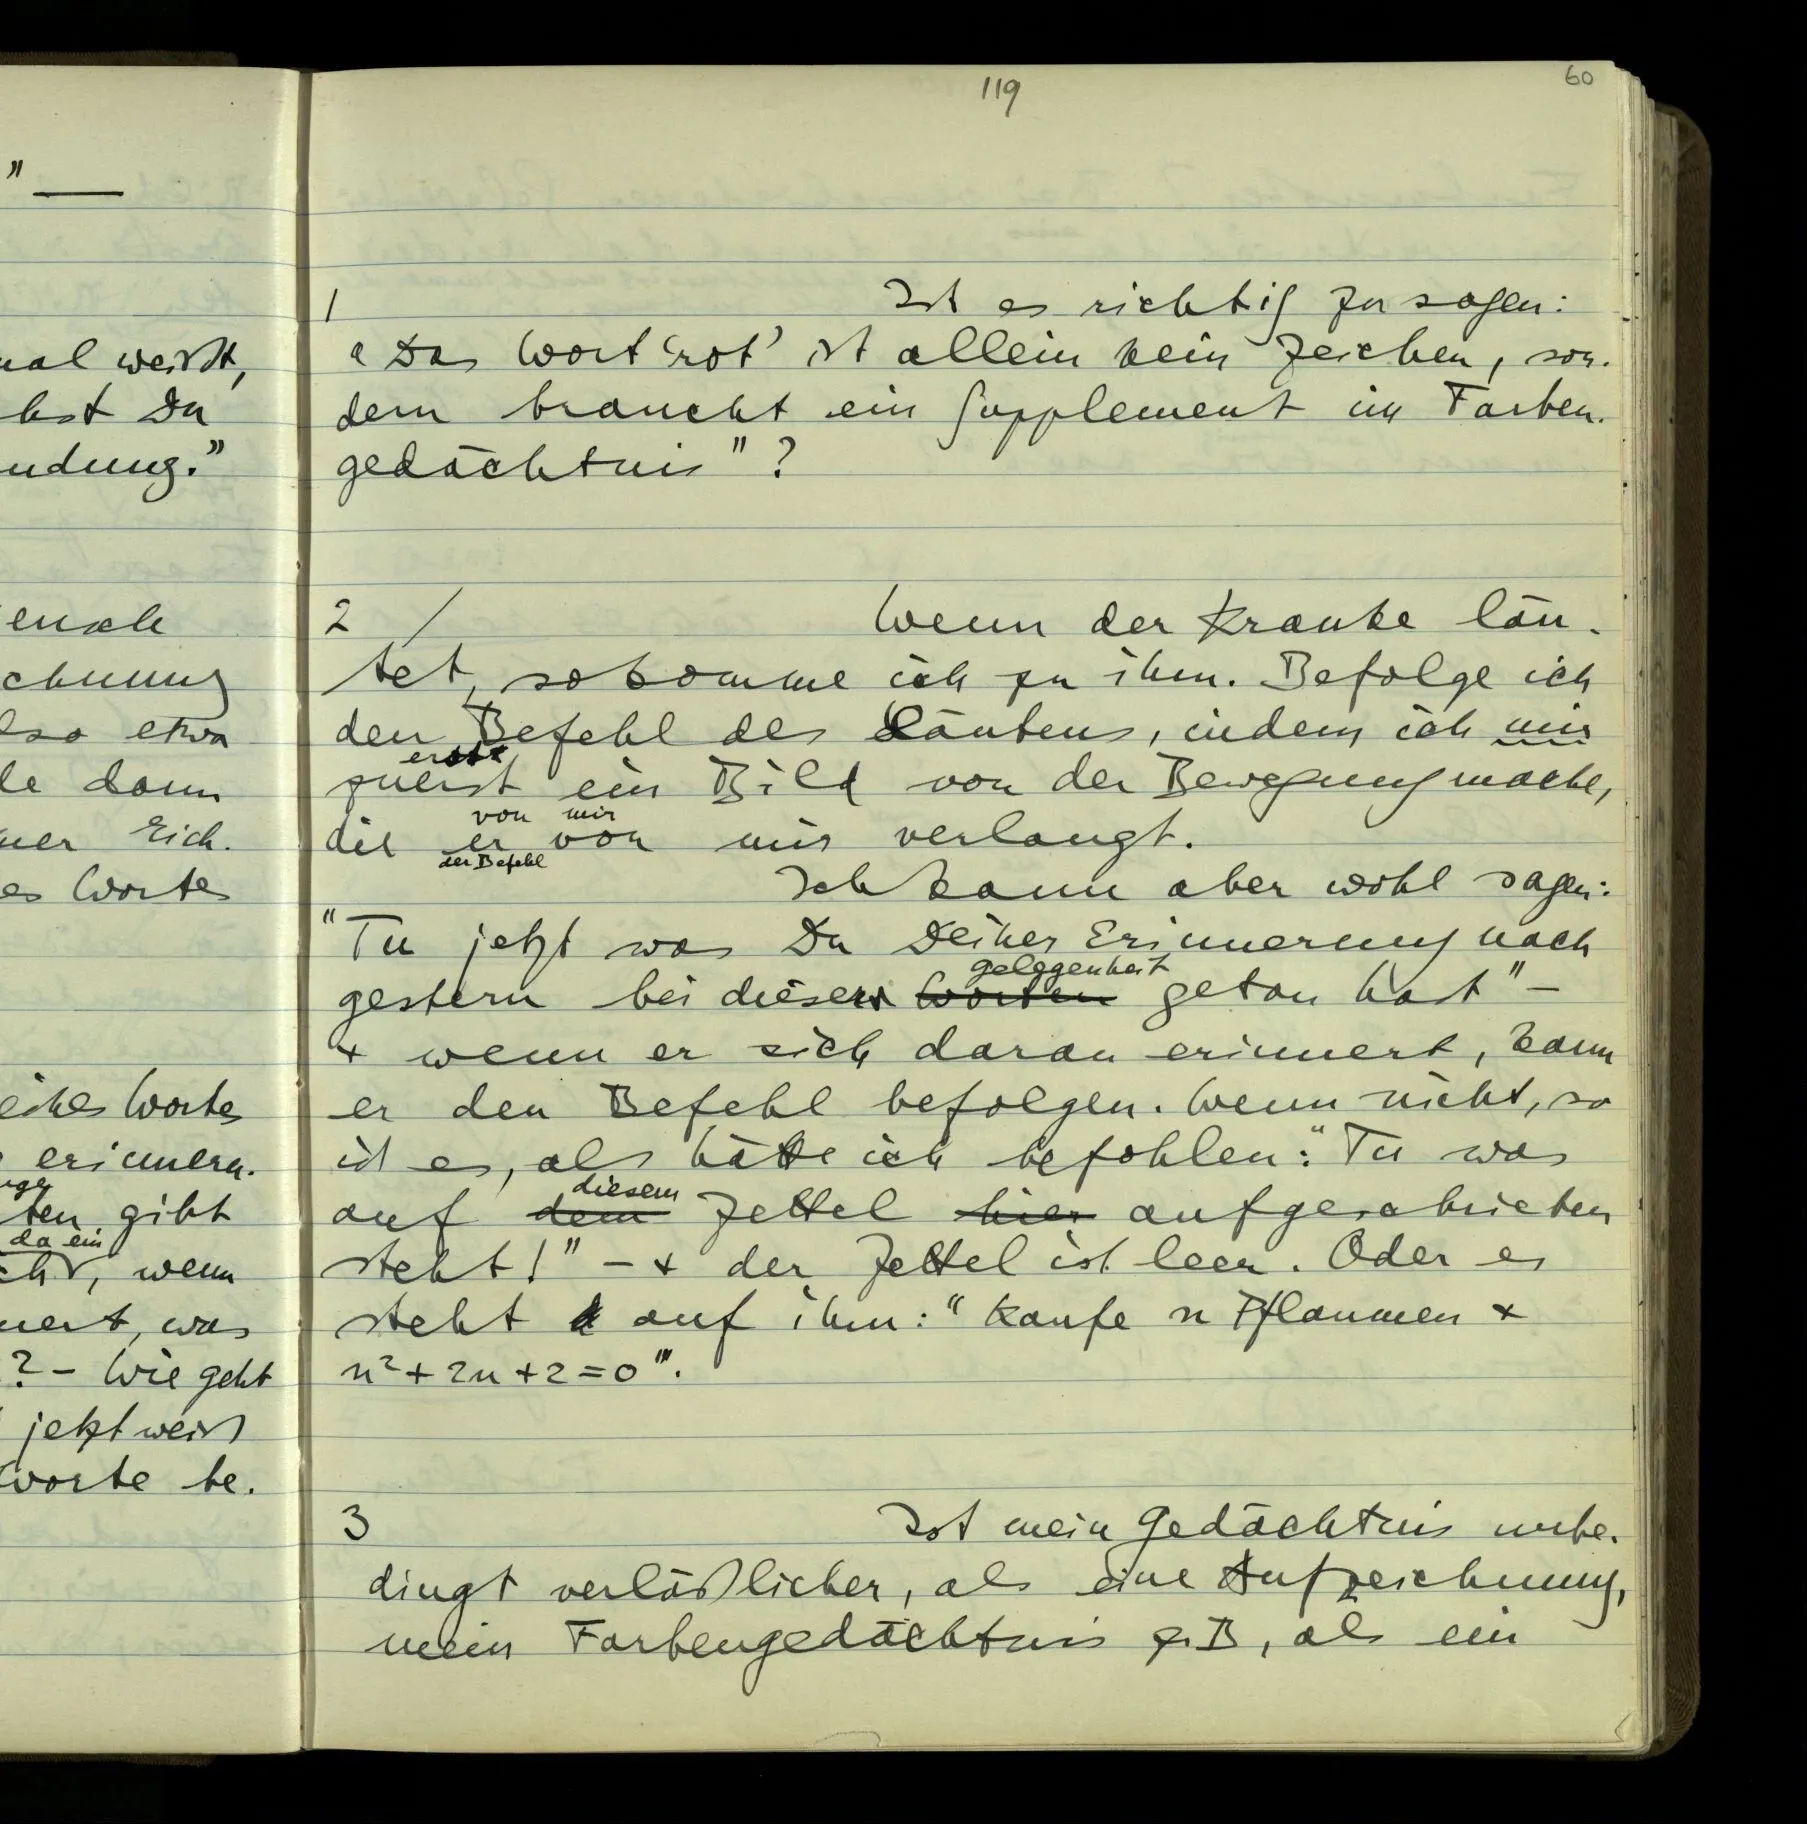 "
nal weißt,
bst Du
ndung."
ensch
chnung
lso etwa
le dann
ner Eich-
es Wortes
eines Wortes
erinnern.
ten gibt
da ein
, wenn
nert, was
? – Wie geht
jetzt weißt
Worte be-
119
60
1 Ist es richtig zu sagen:
"Das Wort 'rot' ist allein kein Zeichen, son-
dern braucht ein Supplement im Farben-
gedächtnis"?
2 / Wenn der Kranke läu-
tet, so komme ich zu ihm. Befolge ich
den Befehl des Läutens, indem ich mir
erst
zuerst ein Bild von der Bewegung mache,
von mir
die er von mir verlangt.
der Befehl
Ich kann aber wohl sagen:
"Tu jetzt was Du Deiner Erinnerung nach
gelegenheit
gestern bei dieser Worten getan hast" –
+ wenn er sich daran erinnert, kann
er den Befehl befolgen. Wenn nicht, so
ist es, als hätte ich befohlen: "Tu was
diesem
auf dem Zettel hier aufgeschrieben
steht!" – + der Zettel ist leer. Oder es
steht auf ihm: "Kaufe n Pflaumen +
n²+2n+2=0"'.
3 Ist mein Gedächtnis unbe-
dingt verläßlicher, als eine Aufzeichnung,
mein Farbengedächtnis z.B, als ein